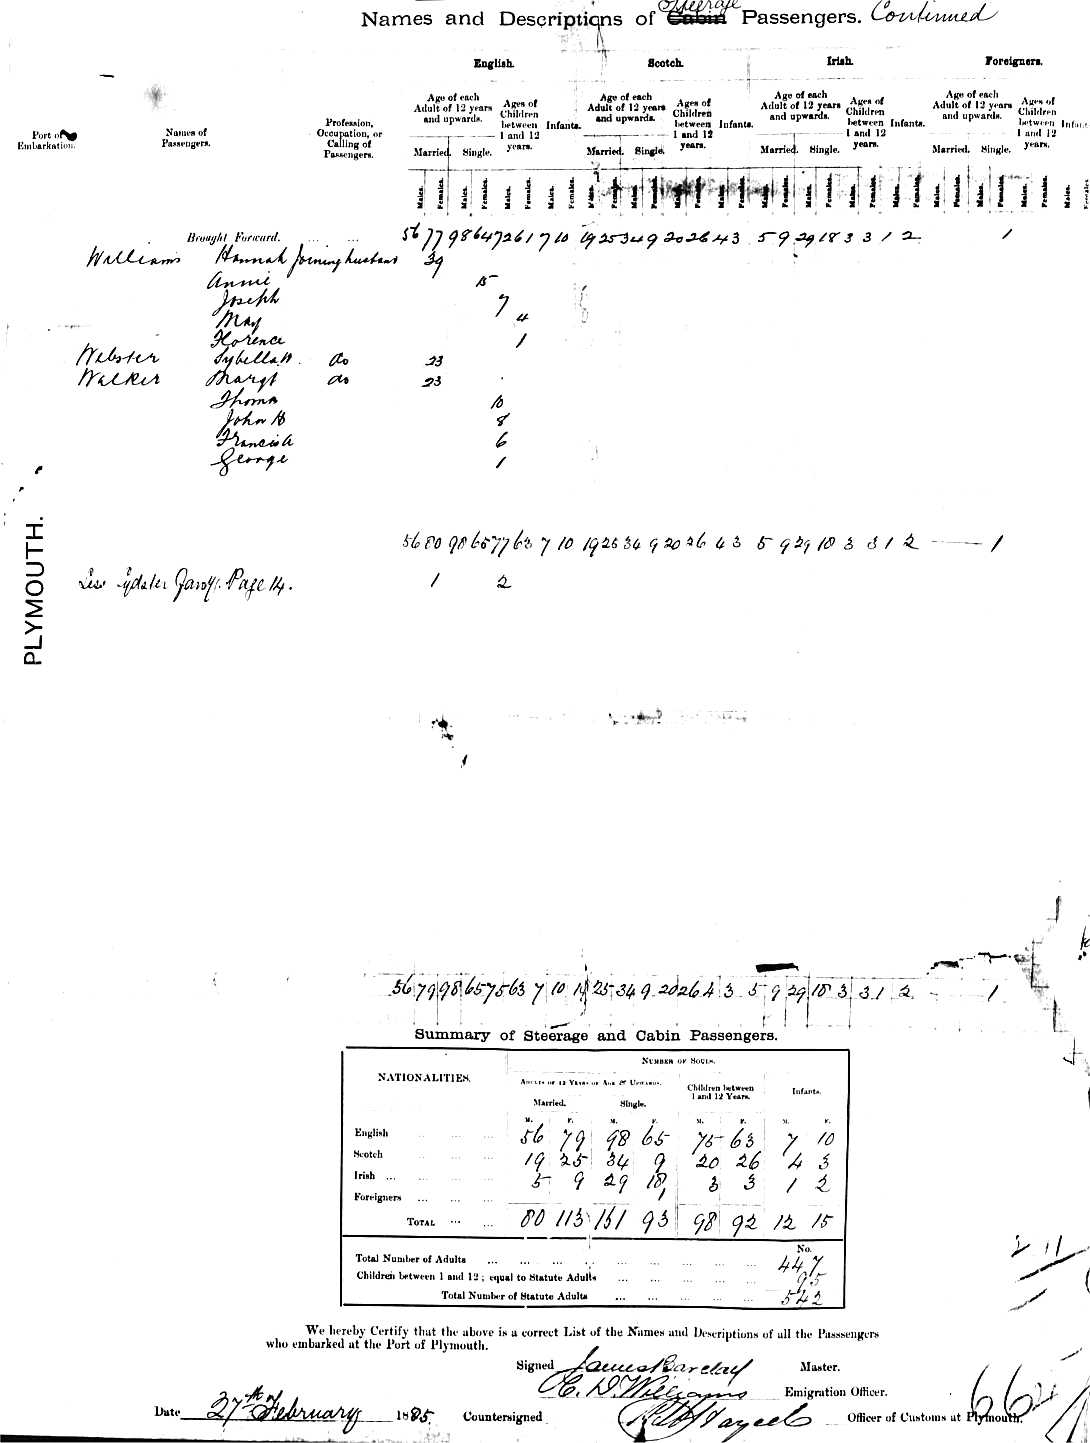 Names and Descriptions of Cabin Steerage Passengers. Continued
English. Scotch. Irish. Foreigners.
Port of Embarkation. Names of Passengers. Profession, Occupation, or Calling of Passengers.
Age of each Adult of 12 years and upwards. Ages of Children between 1 and 12 years. Infants. Age of each Adult of 12 years and upwards. Ages of Children between 1 and 12 years. Infants. Age of each Adult of 12 years and upwards. Ages of Children between 1 and 12 years. Infants. Age of each Adult of 12 years and upwards. Ages of Children between 1 and 12 years.
Married. Single. Married. Single. Married. Single. Married. Single.
Males. Females. Males. Females. Males. Females. Males. Females.
Brought Forward. ... ... 56 77 98 64 72 61 7 10 19 25 34 9 20 26 4 3 5 9 29 18 3 3 1 2 1
Williams Hannah Joining husband 39
Annie 15
Joseph 7
May 4
Florence 1
Webster Sybella H. do 23
Walker Margt do 23
Thomas 10
John H 8
Francis A 6
George 1
PLYMOUTH.
56 80 98 65 77 63 7 10 19 25 34 9 20 26 4 3 5 9 29 18 3 3 1 2 1
Less Page 14. 1 2
56 79 98 65 75 63 7 10 19 25 34 9 20 26 4 3 5 9 29 18 3 3 1 2 1
Summary of Steerage and Cabin Passengers.
NATIONALITIES. NUMBER OF SOULS.
ADULTS OF 12 YEARS OF AGE & UPWARDS. Children between 1 and 12 Years. Infants.
Married. Single.
M. F. M. F. M. F. M. F.
English ... ... ... 56 79 98 65 75 63 7 10
Scotch ... ... ... 19 25 34 9 20 26 4 3
Irish ... ... ... 5 9 29 18 3 3 1 2
Foreigners ... ... ... 1
TOTAL ... ... 80 113 161 93 98 92 12 15
No.
Total Number of Adults ... ... ... ... ... ... ... ... 447
Children between 1 and 12; equal to Statute Adults ... ... ... ... 95
Total Number of Statute Adults ... ... ... ... 542
We hereby Certify that the above is a correct List of the Names and Descriptions of all the Passsengers
who embarked at the Port of Plymouth.
Signed James Barclay Master.
C. D. Williams Emigration Officer.
Date 27th February 1885 Countersigned Officer of Customs at Plymouth.